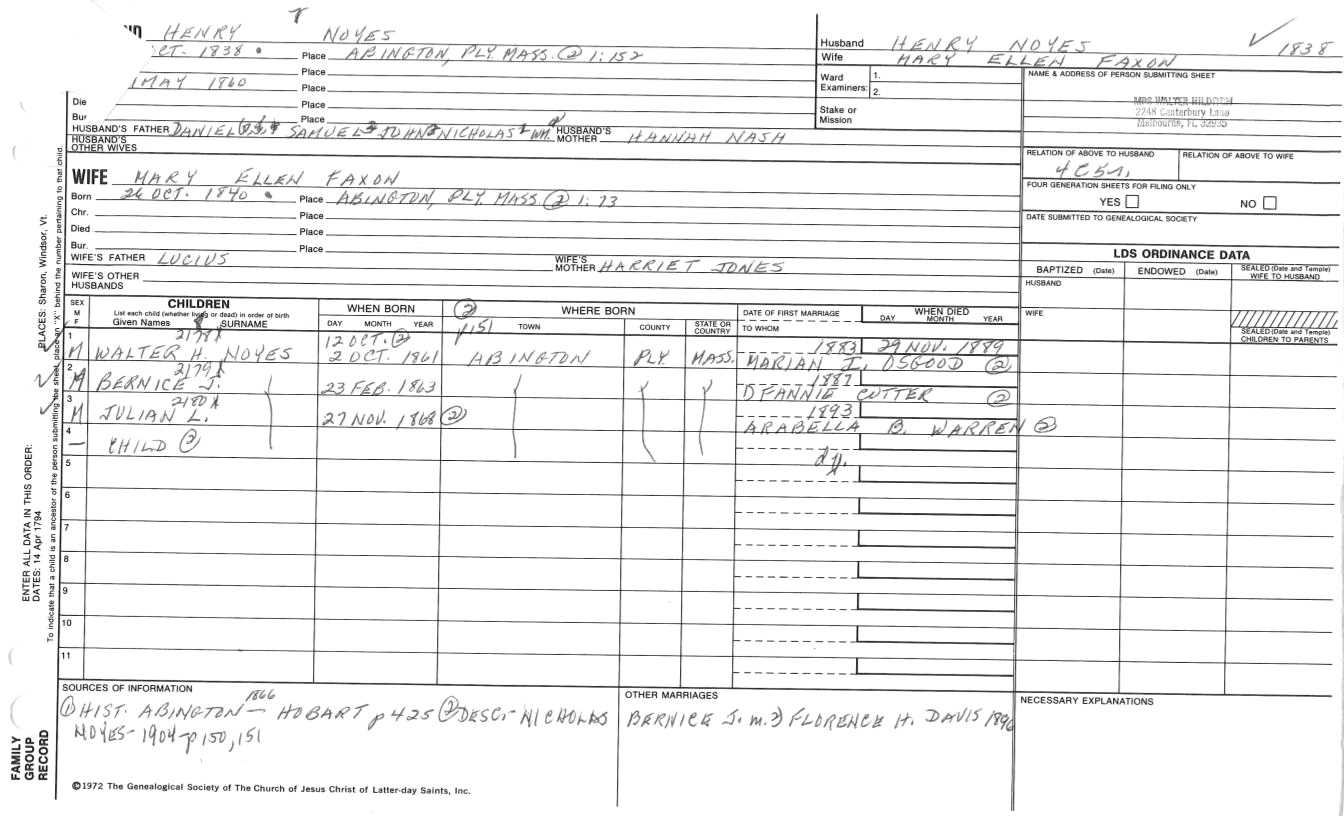 HENRY NOYES
CT. 1838 • Place ABINGTON, PLY. MASS. ② 1:152
Place
MAY 1860 Place
Die Place
Bur Place
HUSBAND'S FATHER DANIEL SAMUEL JOHN NICHOLAS WM. HUSBAND'S MOTHER HANNAH NASH
HUSBAND'S OTHER WIVES
Husband HENRY NOYES ✓ 1838
Wife MARY ELLEN FAXON
Ward Examiners: 1.
2.
Stake or Mission
NAME & ADDRESS OF PERSON SUBMITTING SHEET
MRS WALTER
2248 Canterbury Lane
Melbourne, FL 32935
RELATION OF ABOVE TO HUSBAND RELATION OF ABOVE TO WIFE
FOUR GENERATION SHEETS FOR FILING ONLY
YES NO
DATE SUBMITTED TO GENEALOGICAL SOCIETY
WIFE MARY ELLEN FAXON
Born 26 OCT. 1840 • Place ABINGTON, PLY. MASS. ② 1:73
Chr. Place
Died Place
Bur. Place
WIFE'S FATHER LUCIUS WIFE'S MOTHER HARRIET JONES
WIFE'S OTHER HUSBANDS
LDS ORDINANCE DATA
BAPTIZED (Date) ENDOWED (Date) SEALED (Date and Temple) WIFE TO HUSBAND
HUSBAND
WIFE
SEALED (Date and Temple) CHILDREN TO PARENTS
SEX M F CHILDREN WHEN BORN ② WHERE BORN DATE OF FIRST MARRIAGE WHEN DIED
List each child (whether living or dead) in order of birth
Given Names SURNAME DAY MONTH YEAR p151 TOWN COUNTY STATE OR COUNTRY TO WHOM DAY MONTH YEAR
1 2178X 12 OCT. ② 1883 29 NOV. 1889
M WALTER H. NOYES 2 OCT. 1861 ABINGTON PLY. MASS. MARIAN I. OSGOOD ②
2 2179X 1887
M BERNICE J. 23 FEB. 1863 FANNIE CUTTER ②
3 2180X 1893
M JULIAN L. 27 NOV. 1868 ② ARABELLA B. WARREN ②
4
— CHILD ② dy.
5
6
7
8
9
10
11
SOURCES OF INFORMATION
1866
① HIST. ABINGTON - HOBART p 425 ② DESC. - NICHOLAS
NOYES - 1904 - p 150, 151
OTHER MARRIAGES
BERNICE J. m. 2) FLORENCE H. DAVIS 1896
NECESSARY EXPLANATIONS
©1972 The Genealogical Society of The Church of Jesus Christ of Latter-day Saints, Inc.
FAMILY GROUP RECORD
ENTER ALL DATA IN THIS ORDER:
DATES: 14 Apr 1794
PLACES: Sharon, Windsor, Vt.
To indicate that a child is an ancestor of the person submitting the sheet, place an "X" behind the number pertaining to that child.